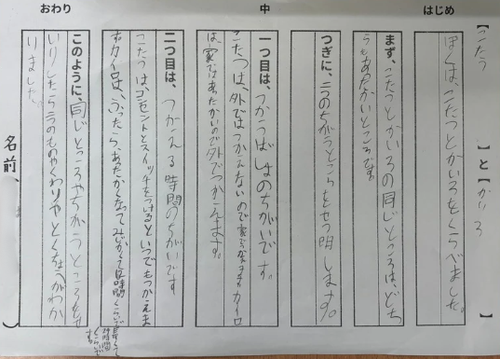 はじめ
中
おわり
【こたつ】と【かいろ】
ぼくは、こたつとかいろをくらべました。
まず、こたつとかいろの同じところは、どち
らもあたたかいところです。
つぎに、二つのちがうところをせつ明します。
一つ目は、つかうばしょのちがいです。
こたつは、外ではつかえないので家でつかいます。カイロ
は、家ではあたたかいので外でつかえます。
二つ目は、つかえる時間のちがいです
こたつは、コンセントとスイッチをつけるといつでもつかえま
すカイロは、ふったら、あたたかくなって
このように、同じところやちがうところをせ
いりしたら二つのもののやくわりやとくちょうがわか
りました。
名前、